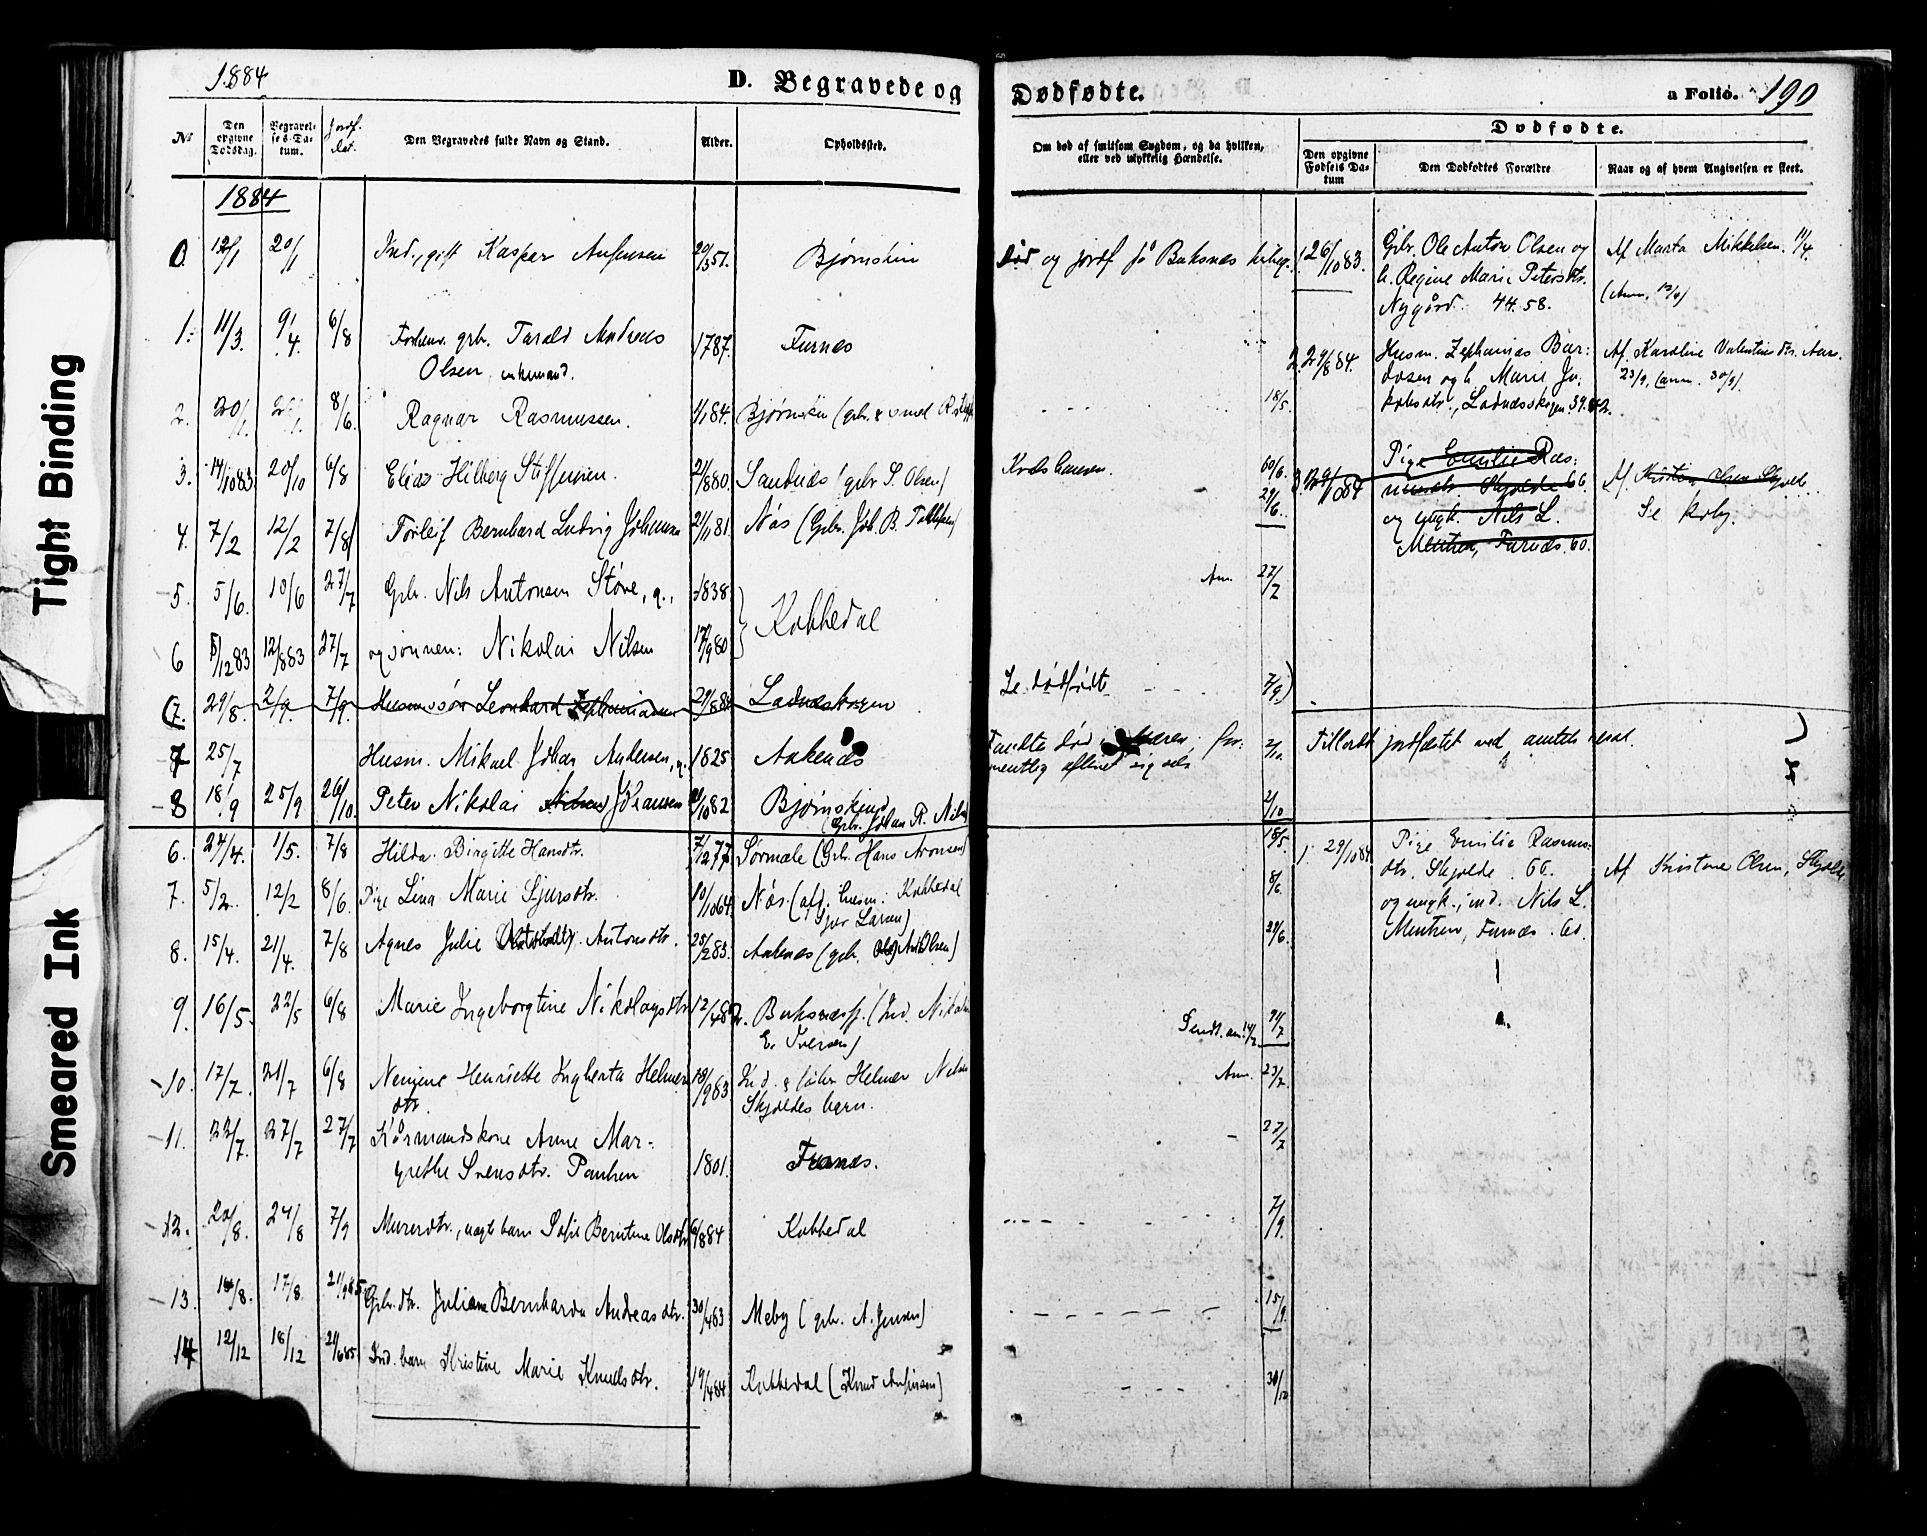 1884
D. Begravede og
Dødfødte.
a Folio. 190
№
Den opgivne Dødsdag.
Begravelses-Datum.
Jordf. dat.
Den Begravedes fulde Navn og Stand.
Alder.
Opholdssted.
Om død af smitsom Sygdom, og da hvilken, eller ved ulykkelig Hændelse.
Dødfødte.
Den opgivne Fødsels Datum
Den Dødfødtes Forældre
Naar og af hvem Angivelsen er skeet.
1884
0. 12/1 20/1 Ind., gift Kaspar 20/3 51. Bjørnskin
død og jordf på Buksnes kirkeg.
1. 11/3. 9/4. 6/8 grb. Tarald Andreas
Olsen, enkemand. 1787. Furnes
2. 20/1. 8/6. Ragnar Rasmussen. 1/1 84. Bjørnskin
18/5.
3. 14/10 83 20/10 6/8 Elias Hilberg Steffensen. 21/8 80. Sandnes (grbr S. Olsen)
4. 7/2 12/2 7/8 Torleif Bernhard Ludvig Johansen 21/1 81. Nøs (Grbr. Joh. B. Tollefsen)
29/6.
5. 5/6. 10/6 27/7 Grb. Nils Antonsen Støve, g., 1838
Kobbedal
Anm. 27/7
6 12 83 12/8 83 27/7 og sønnen: Nikolai Nilsen 17/9 80
7. 29/8. 2/9. 7/9. Husm.søn Leonhard Zephaniasen 29/8 84 Ladnæskogen
Se dødfødte 7/9)
7 25/7 Husm. Mikael Johan Andersen, g. 1825 Aakenes
Fundtes død i fjæren, for-
mentlig
2/10. Tilladt jordfæstet ved amtets resol.
8 18/9 25/9 26/10. Peter Nikolai Johansen 82 Bjørnskind
(Grbr. Johan P. Nilsen)
2/10
6. 24/4. 1/5. 7/8 Hilda Birgitte Hansdtr. 7/12 77 Sørmele (Gbr. Hans Aronsen)
18/5.
7. 5/2. 12/2 8/6. Pige Lina Marie Sjursdtr. 10/10 64. Nøs (afd. husm. Kobbedal
Sjur Larsen)
8/6.
8. 15/4. 21/4. 7/8 Agnes Julie Antonsdtr. 25/2 83. Aakenes (grb. Ant Olsen)
29/6.
9. 16/5. 22/5 6/8 Marie Ingeborgtine Nikolaysdtr 12/4 82. Buksnesfj. (Ind. Nikolai
E. Iversen)
10. 17/7. 21/7 6/8 Henriette Ingberta Helmers-
dtr. 18/9 83 Ind. Helmer Nilsen
Skjoldes barn.
Anm. 23/7.
11. 22/7. 27/7 27/7 Kårmandskone Anne Mar-
grethe Svensdtr. Paulsen 1801. Furnes.
27/7
12. 20/8. 24/8 7/9 Murerdtr., uægt barn Sofie Berntine Olsdtr 6/8 84 Kobbedal
7/9.
13. 10/8. 17/8. 21/9 85 Grb. dtr. Juliane Bernharda Andreasdtr. 30/4 83 Meby (grb. A. Jensen)
15/9.
14 12/12 18/12 21/6 85 Ind. barn Kristine Marie Knudsdtr. 19/4 84 Kobbedal (Knud
30/12
1. 26/10 83. Gbr. Ole Anton Olsen og
h. Regine Marie Petersdtr.
Nygård. 44. 58.
Af Marta Mikkelsen. 11/4.
(Anm. 12/4)
2. 29/8 84. Husm. Zephanias Bar-
dosen og h. Marie Ja-
kobsdtr., Ladnæsskogen 39. 42.
Af. Karoline Valentinsdtr.
23/9. (anm. 30/9).
3. 29/10 84 Pige Emilie Ras-
musdtr. Skjolde 66.
og ungk. Nils L.
Mentzen, Furnæs. 60.
Af Kristine Olsen Skjolde
Se kvby.
1. 29/10 84 Pige Emilie Rasmus-
dtr. Skjolde. 66.
og ungk., ind. Nils L.
Mentzen, Furnæs. 60.
Af Kristine Olsen, Skjolde
Tight Binding
Smeared Ink